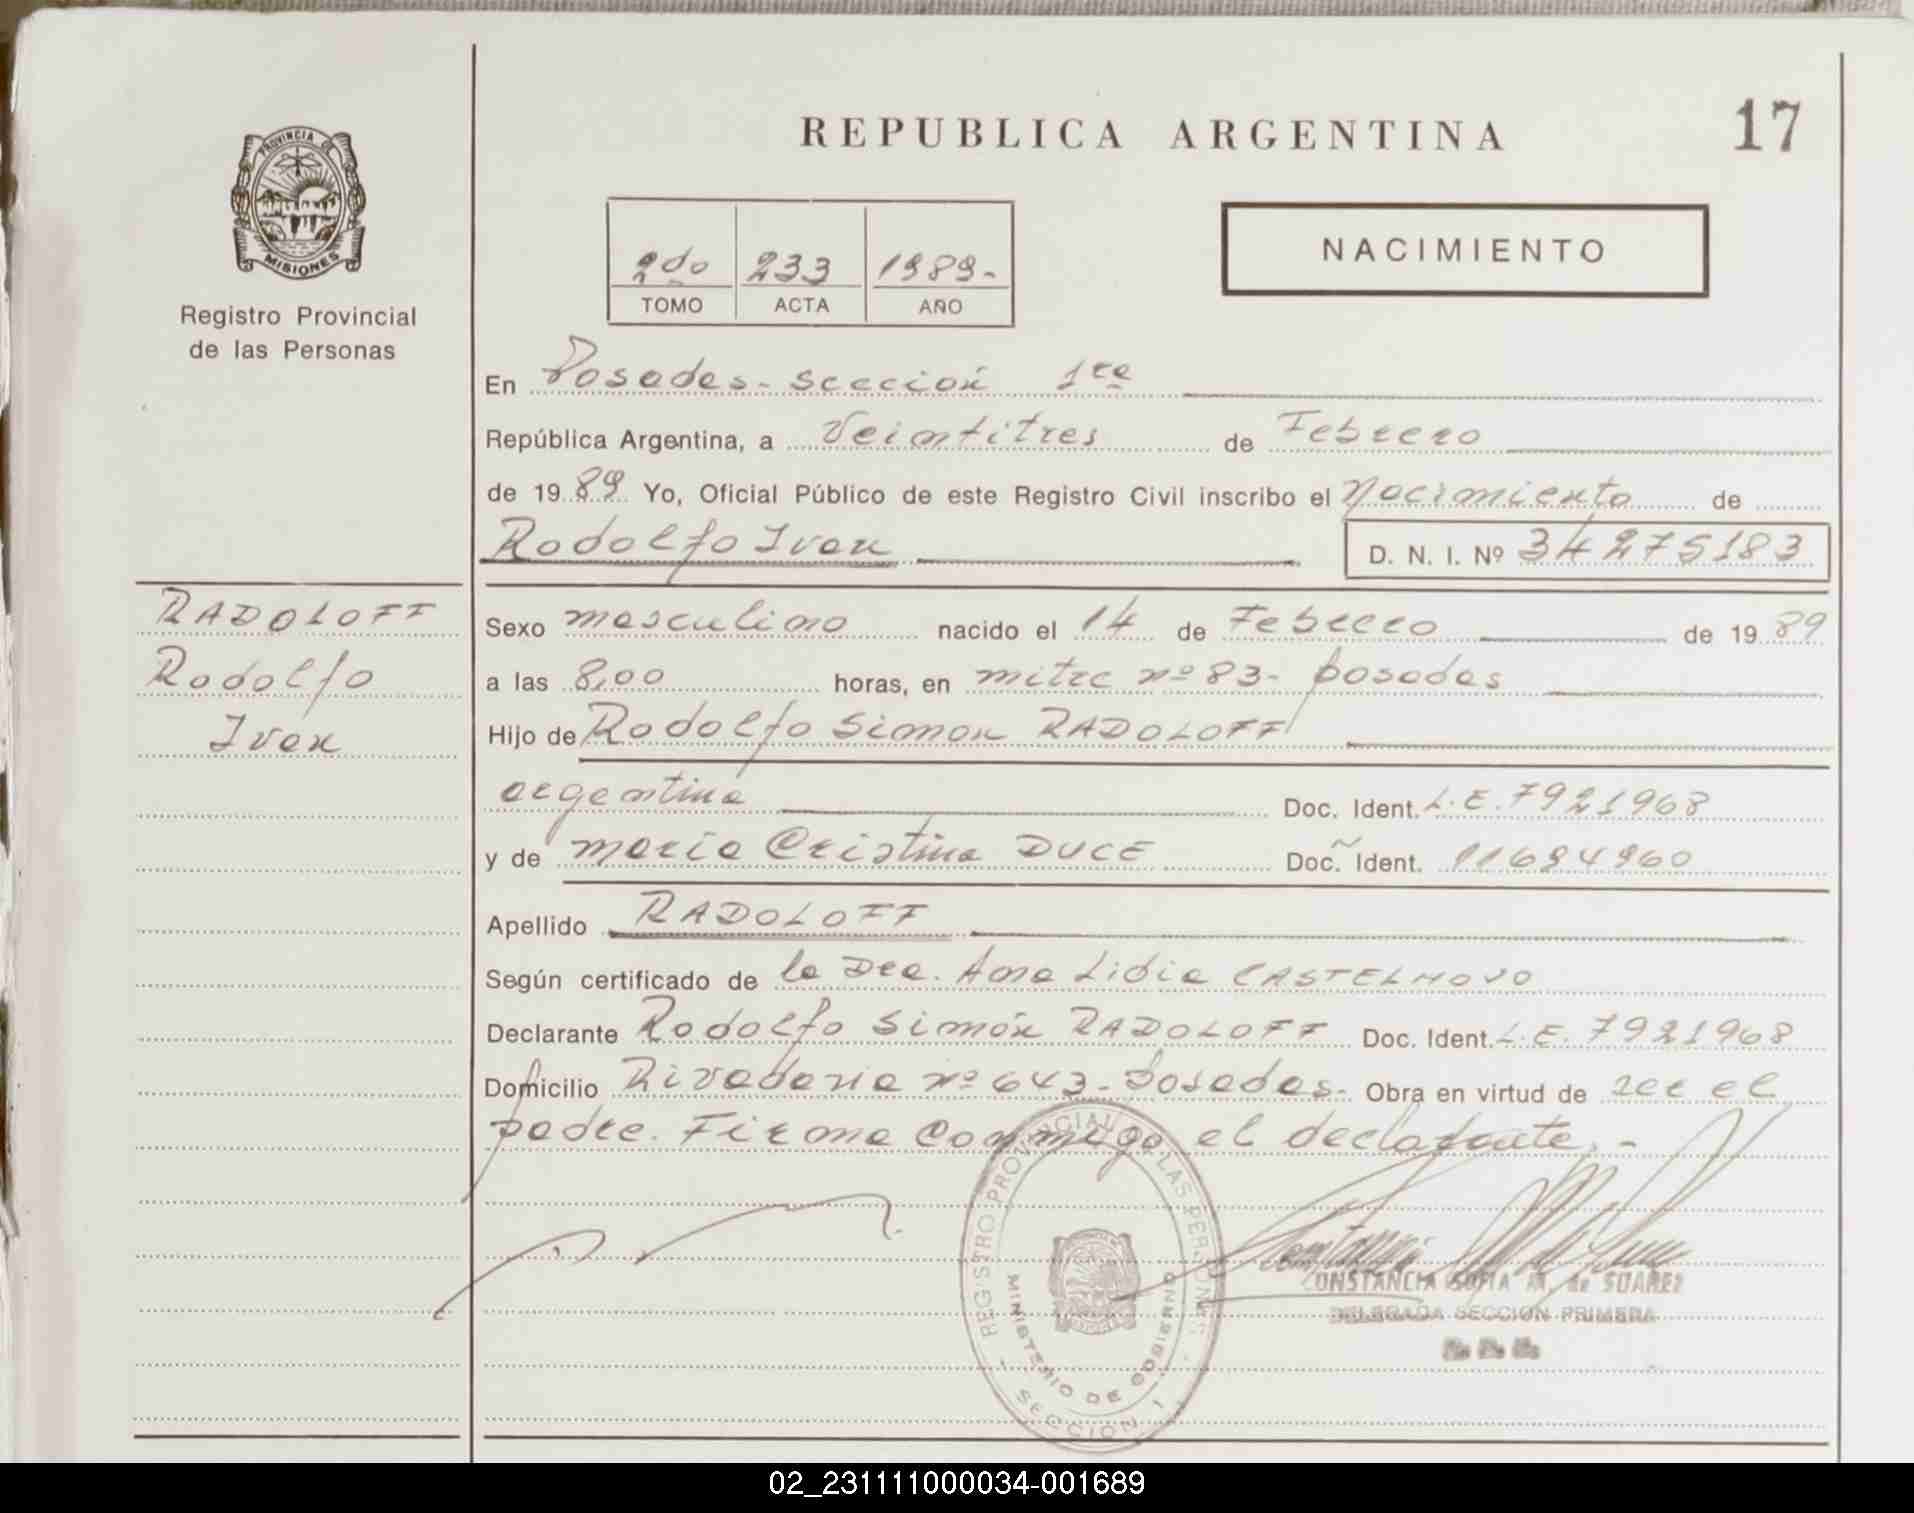 REPUBLICA ARGENTINA
17
PROVINCIA DE
MISIONES
Registro Provincial
de las Personas
2do 233 1989.-
TOMO ACTA AÑO
NACIMIENTO
En Posadas - sección 1ra
República Argentina, a Veintitres de Febrero
de 1989 Yo, Oficial Público de este Registro Civil inscribo el Nacimiento de
Rodolfo Ivan D. N. I. Nº 34275183
RADOLOFF
Rodolfo
Ivan
Sexo masculino nacido el 14 de Febrero de 1989
a las 8,00 horas, en mitre nº 83 - posadas
Hijo de Rodolfo Simon RADOLOFF
argentina Doc. Ident. L.E. 7921968
y de maria Cristina DUCE Doc. Ident. 11694960
Apellido RADOLOFF
Según certificado de la Dra. Ana Lidia CASTELNOVO
Declarante Rodolfo Simón RADOLOFF Doc. Ident. L.E. 7921968
Domicilio Rivadavia nº 643 - Posadas - Obra en virtud de ser el
padre. Firma conmigo el declarante. -
REGISTRO PROVINCIAL DE LAS PERSONAS
MINISTERIO DE GOBIERNO
SECCION 1
CONSTANCIA SOFIA M. de SUAREZ
DELEGADA SECCION PRIMERA
02_231111000034-001689